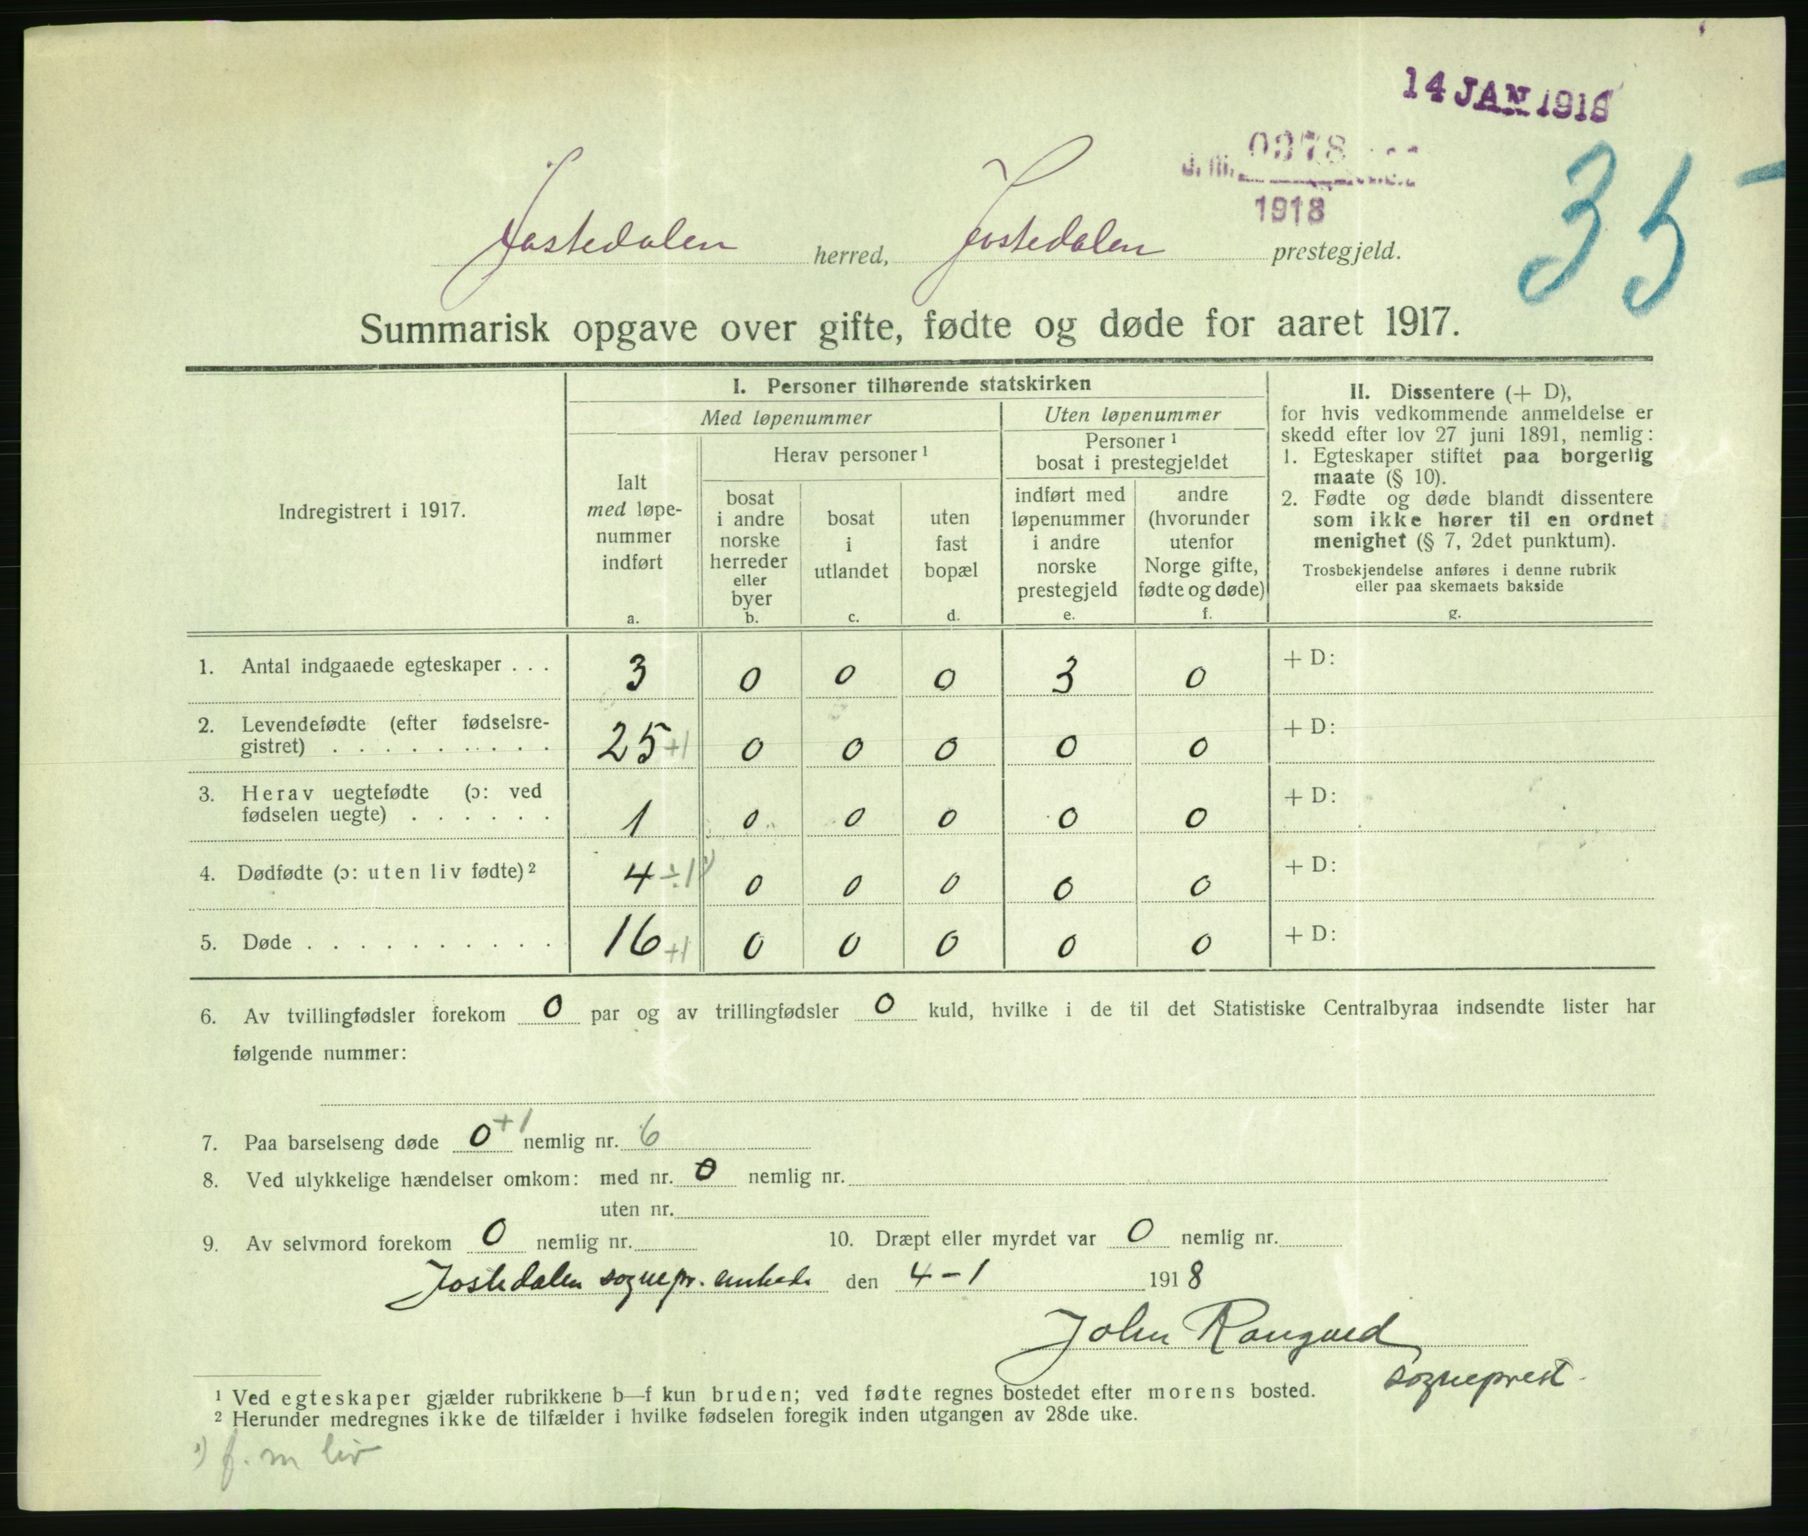 14 JAN 1918
J. nr. 0378
1918
35
Jostedalen herred, Jostedalen prestegjeld.
Summarisk opgave over gifte, fødte og døde for aaret 1917.
Indregistrert i 1917.
I. Personer tilhørende statskirken
Med løpenummer
Uten løpenummer
Ialt
med løpe-
nummer
indført
a.
Herav personer ¹
bosat
i andre
norske
herreder
eller
byer
b.
bosat
i
utlandet
c.
uten
fast
bopæl
d.
Personer ¹
bosat i prestegjeldet
indført med
løpenummer
i andre
norske
prestegjeld
e.
andre
(hvorunder
utenfor
Norge gifte,
fødte og døde)
f.
II. Dissentere (+ D),
for hvis vedkommende anmeldelse er
skedd efter lov 27 juni 1891, nemlig:
1. Egteskaper stiftet paa borgerlig
maate (§ 10).
2. Fødte og døde blandt dissentere
som ikke hører til en ordnet
menighet (§ 7, 2det punktum).
Trosbekjendelse anføres i denne rubrik
eller paa skemaets bakside
g.
1. Antal indgaaede egteskaper . . . 3 0 0 0 3 0 + D:
2. Levendefødte (efter fødselsre-
gistret) . . . . . . . . . . 25 +1 0 0 0 0 0 + D:
3. Herav uegtefødte (ɔ: ved
fødselen uegte) . . . . . . 1 0 0 0 0 0 + D:
4. Dødfødte (ɔ: uten liv fødte) ² 4 ÷1 ¹) 0 0 0 0 0 + D:
5. Døde . . . . . . . . . . 16 +1 0 0 0 0 0 + D:
6. Av tvillingfødsler forekom 0 par og av trillingfødsler 0 kuld, hvilke i de til det Statistiske Centralbyraa indsendte lister har
følgende nummer:
7. Paa barselseng døde 0 +1 nemlig nr. 6
8. Ved ulykkelige hændelser omkom: med nr. 0 nemlig nr.
uten nr.
9. Av selvmord forekom 0 nemlig nr. 10. Dræpt eller myrdet var 0 nemlig nr.
Jostedalen sognepr. embede den 4-1 1918
John Rongved
sogneprest.
¹ Ved egteskaper gjælder rubrikkene b—f kun bruden; ved fødte regnes bostedet efter morens bosted.
² Herunder medregnes ikke de tilfælder i hvilke fødselen foregik inden utgangen av 28de uke.
¹) f. m liv